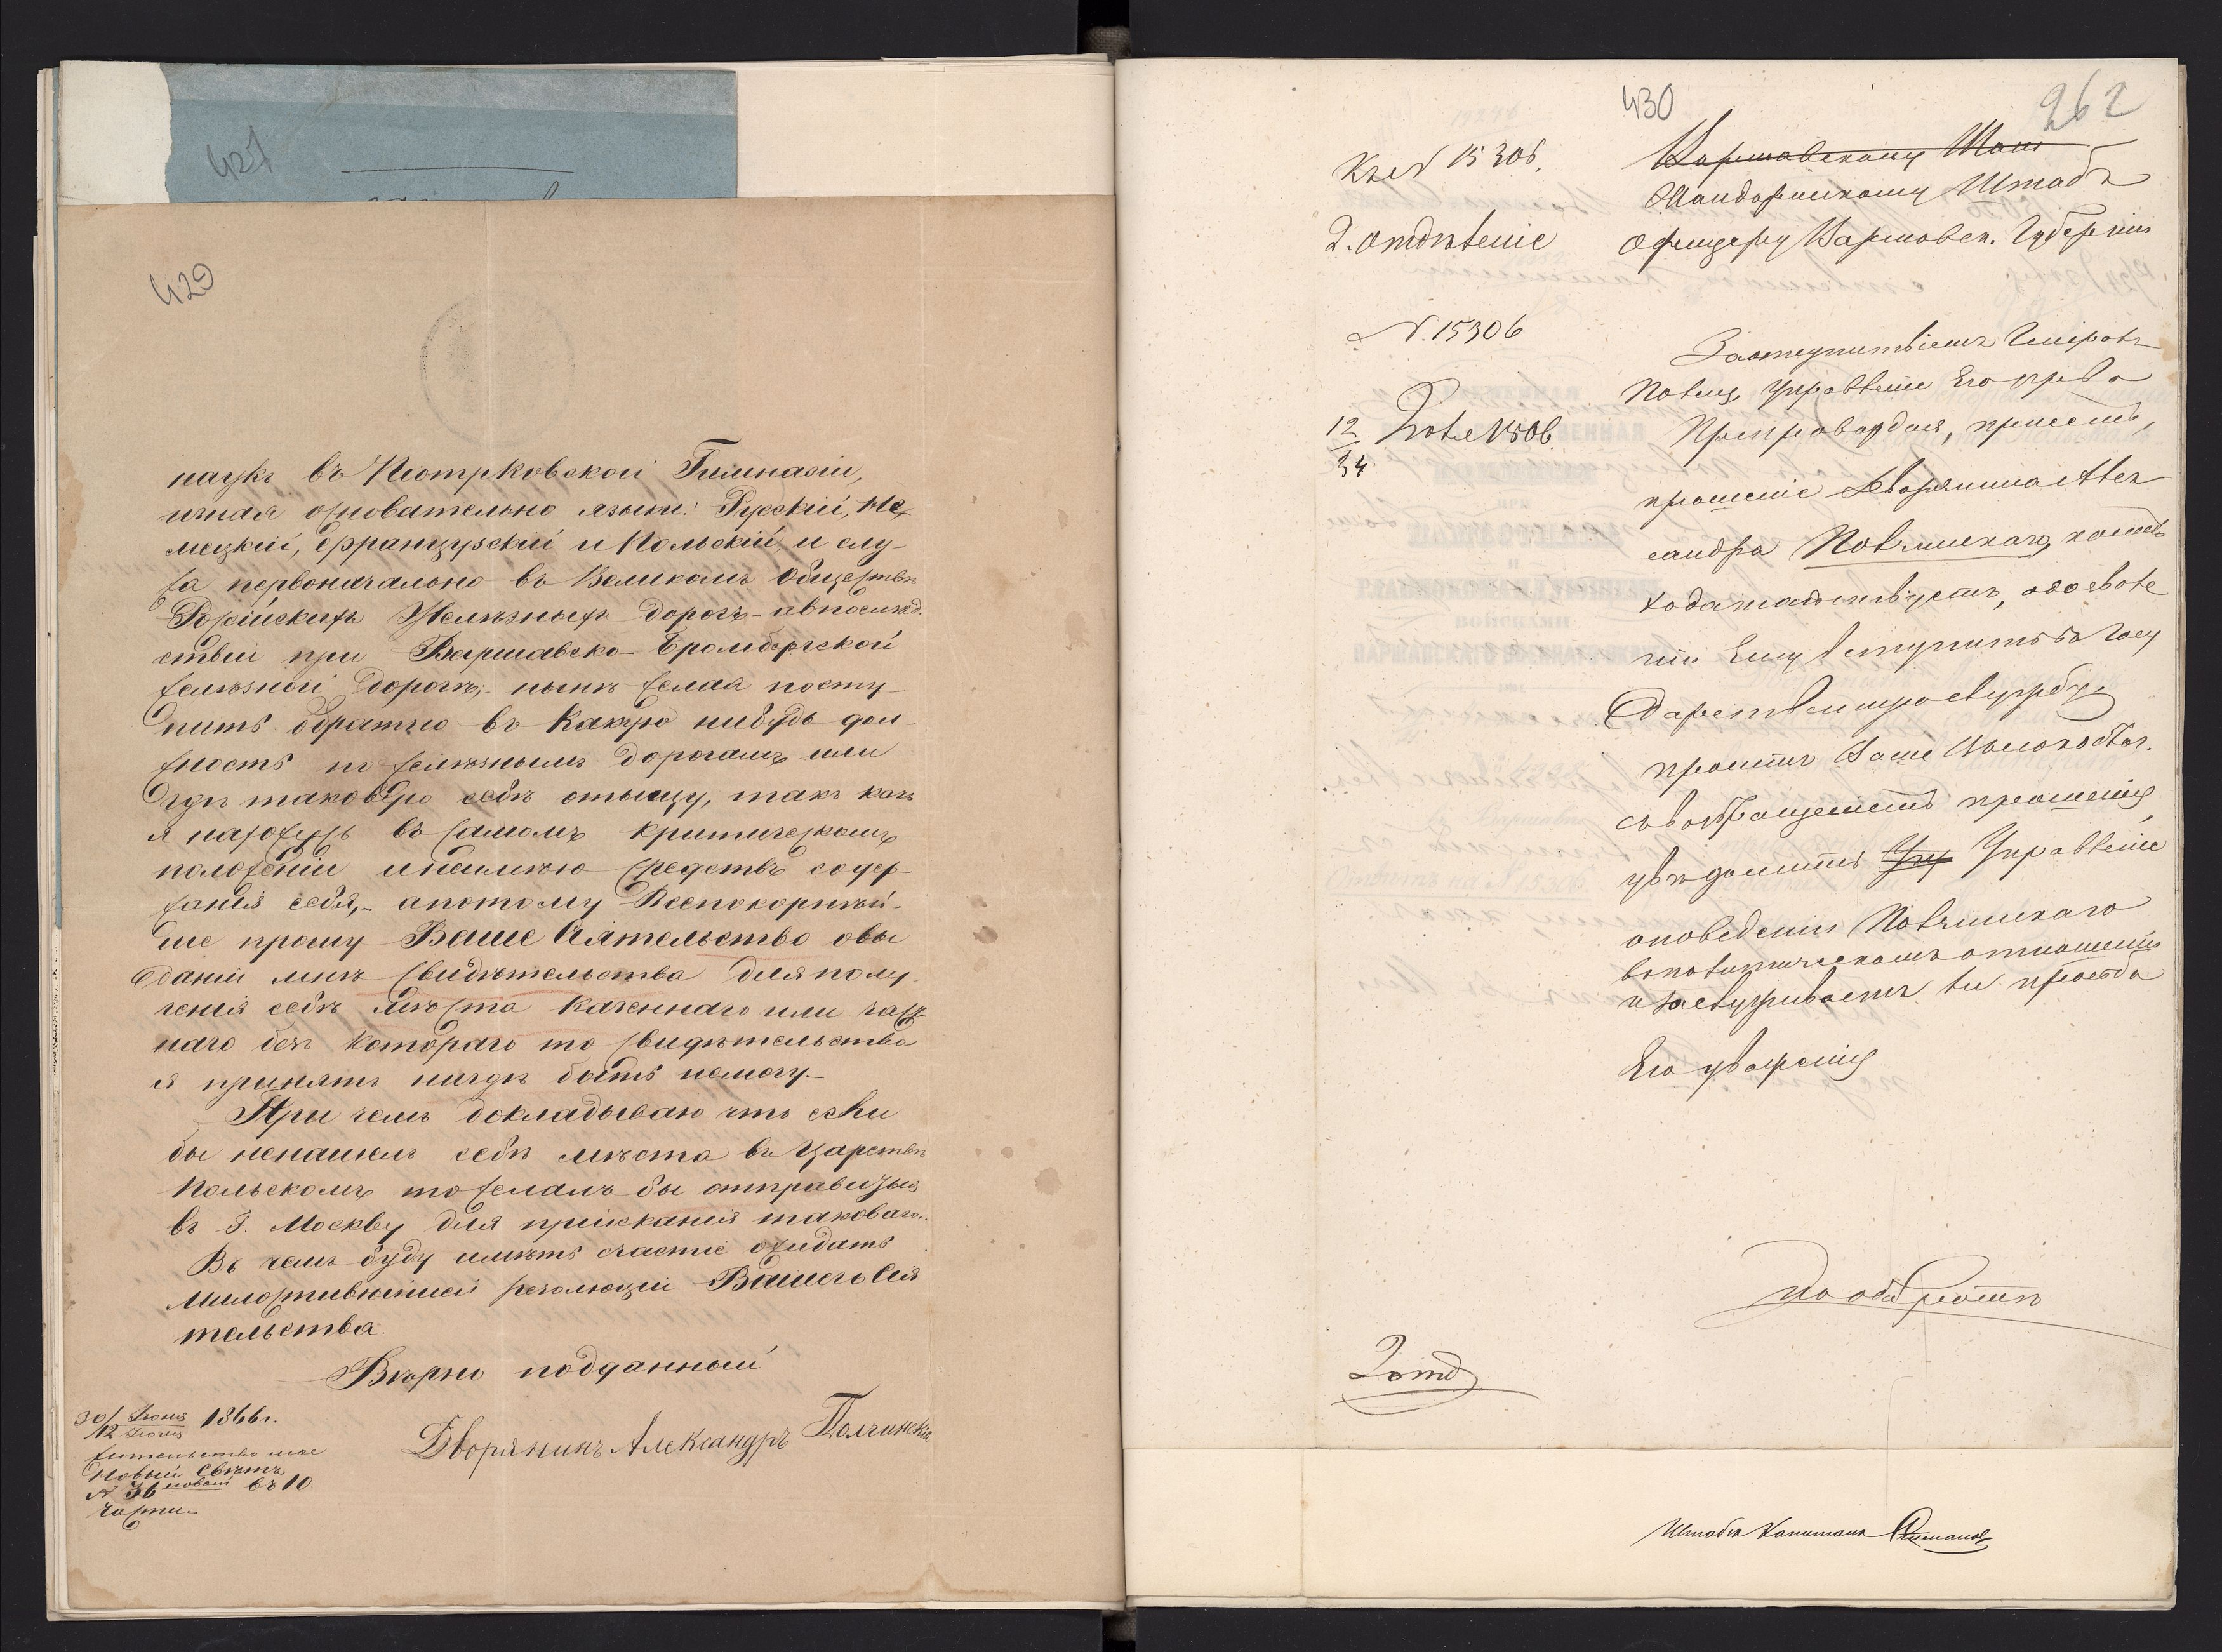 427
429
наукъ въ Піотрковской Гимназіи,
изная основательно языки: Русскій, Не-
мецкій, Французскій и Польскій, и слу-
жа первоначально въ Великомъ Обществѣ
Россійскихъ Желѣзныхъ дорогъ - авпослѣд-
ствіи при Варшавско-Бромбергской
желѣзной дорогѣ, нынѣ желая посту-
пить обратно въ какую нибудь дол-
жность по желѣзнымъ дорогамъ или
гдѣ таковую себѣ отыщу, такъ какъ
я нахожусь въ самомъ критическомъ
положеніи инеимѣю средствъ содер-
жанія себя, - апотому Всепокорнѣй-
ше прошу Ваше Сіятельство овы
даніи мнѣ свидѣтельства для полу-
ченія себѣ мѣста казеннаго или част-
наго безъ котораго то свидѣтельства
я принятъ нигдѣ быть немогу.
При чемъ докладываю что если
бы ненашелъ себѣ мѣста въ Царствѣ
Польскомъ то желалъ бы отправиться
въ г. Москву для пріисканія таковаго.
Въ чемъ буду имѣть счастіе ожидать
милостивѣйшей резолюціи Вашего Сія
тельства.
Вѣрно подданный
Дворянинъ Александръ Полчинскій
30/12 Іюня 1866 г.
жительство мое
Новый Свѣтъ
№ 36 новый въ 10
части
430
262
Къ № 15306.
2. отдѣленіе
№ 15306
12/24 Іюля 1866
Варшавскому
Жандармскому Штабъ
Офицеру Варшавск. Губерніи
Полиц. Управленіе
Препровождая, присемъ,
прошеніе дворянина Алек
сандра Полчинскаго, коимъ
ходатайствуетъ, одозволе
ніи Ему вступить въ Госу
дарственную службу
проситъ Ваше Высокоблаг.
съвозвращеніемъ прошенія,
увѣдомить Упр Управленіе
оповеденіи Полчинскаго
вполитическомъ отношеніи
и заслуживаетъ ли просьба
Его уваженія
2 отд
Штабсъ Капитанъ